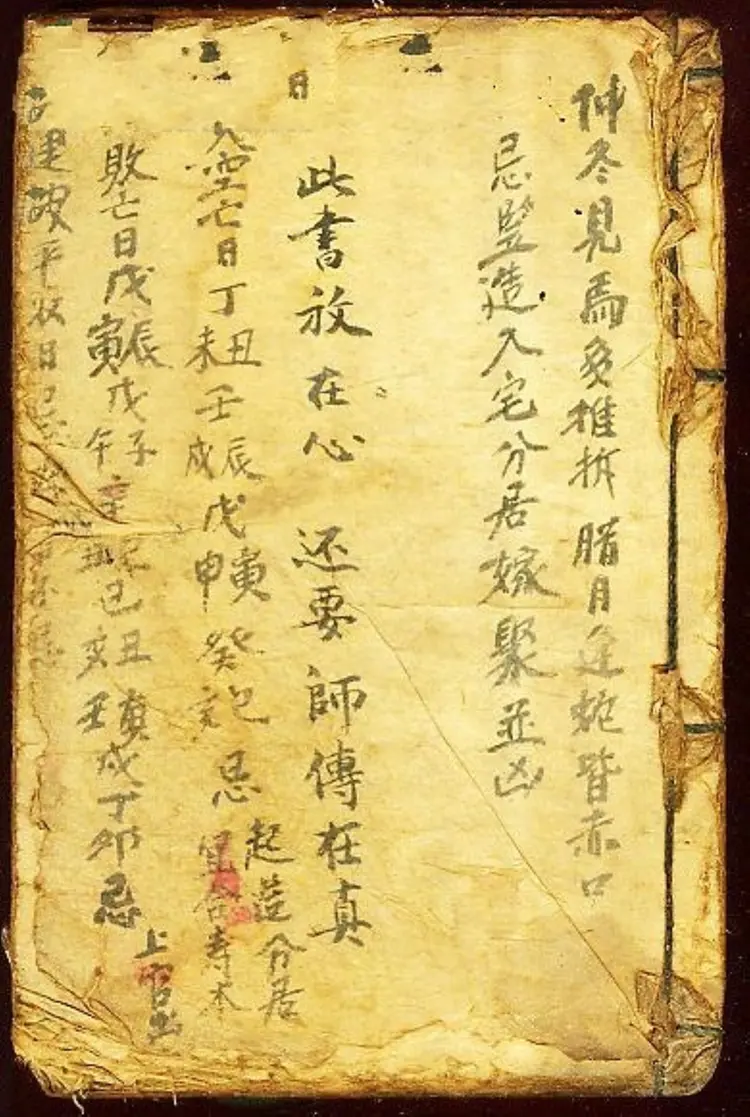 仲冬見馬多推拆 腊月逢蛇皆赤口
忌竪造入宅分居嫁聚並凶
日
此書放在心 还要師傳在真
八空亡日丁丑未壬辰戍戊寅申癸巳忌
起造分居
宜合寿木
敗亡日戊辰寅戊子午辛己丑亥壬寅戍丁卯忌
上官出
建破平收日忌